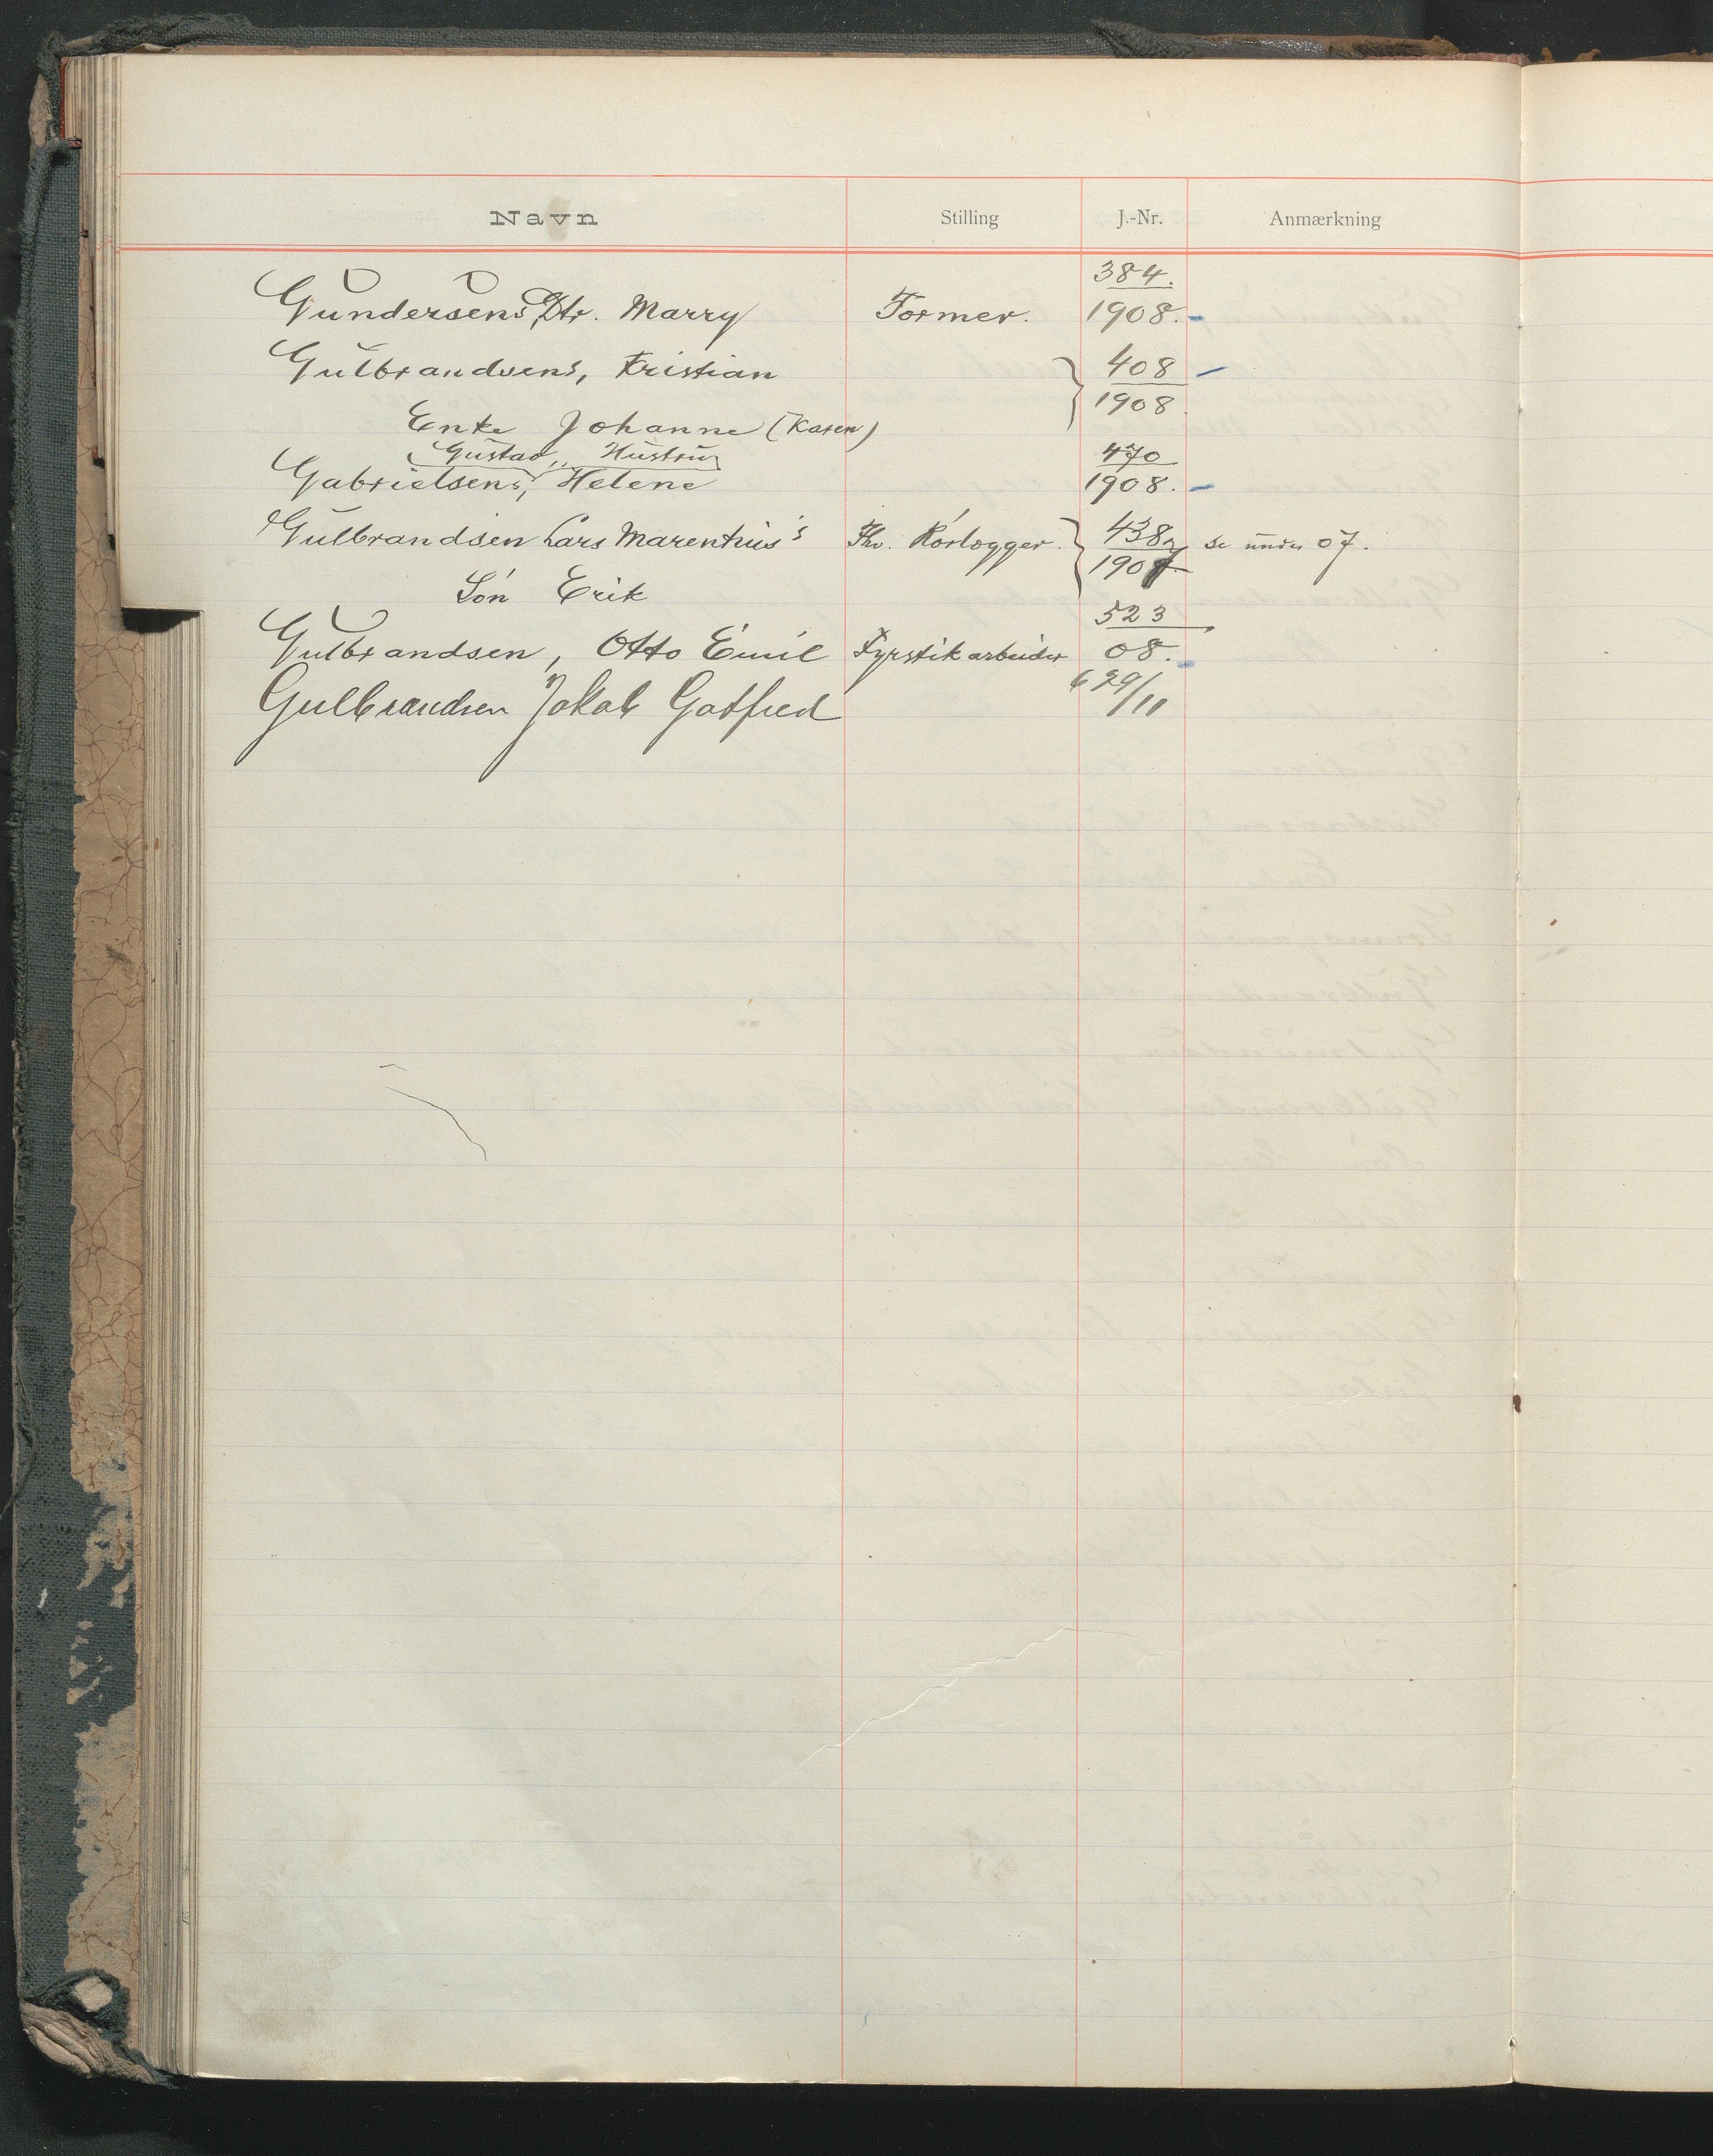 Navn Stilling J.-Nr. Anmærkning
384.
Gundersens, Dtr. Marry Former. 1908. -
Gulbrandsens, Kristian 408 -
1908
Enke Johanne (Karen)
Gustav,, Hustru 470
Gabrielsens, Helene 1908. -
Gulbrandsen Lars Marenthius's Fhv. Rörlægger. 438a se under 07.
1907
Sön Erik
523
Gulbrandsen, Otto Emil Fyrstikarbeider 08. -
Gulbrandsen Jakob Gotfred 629/11